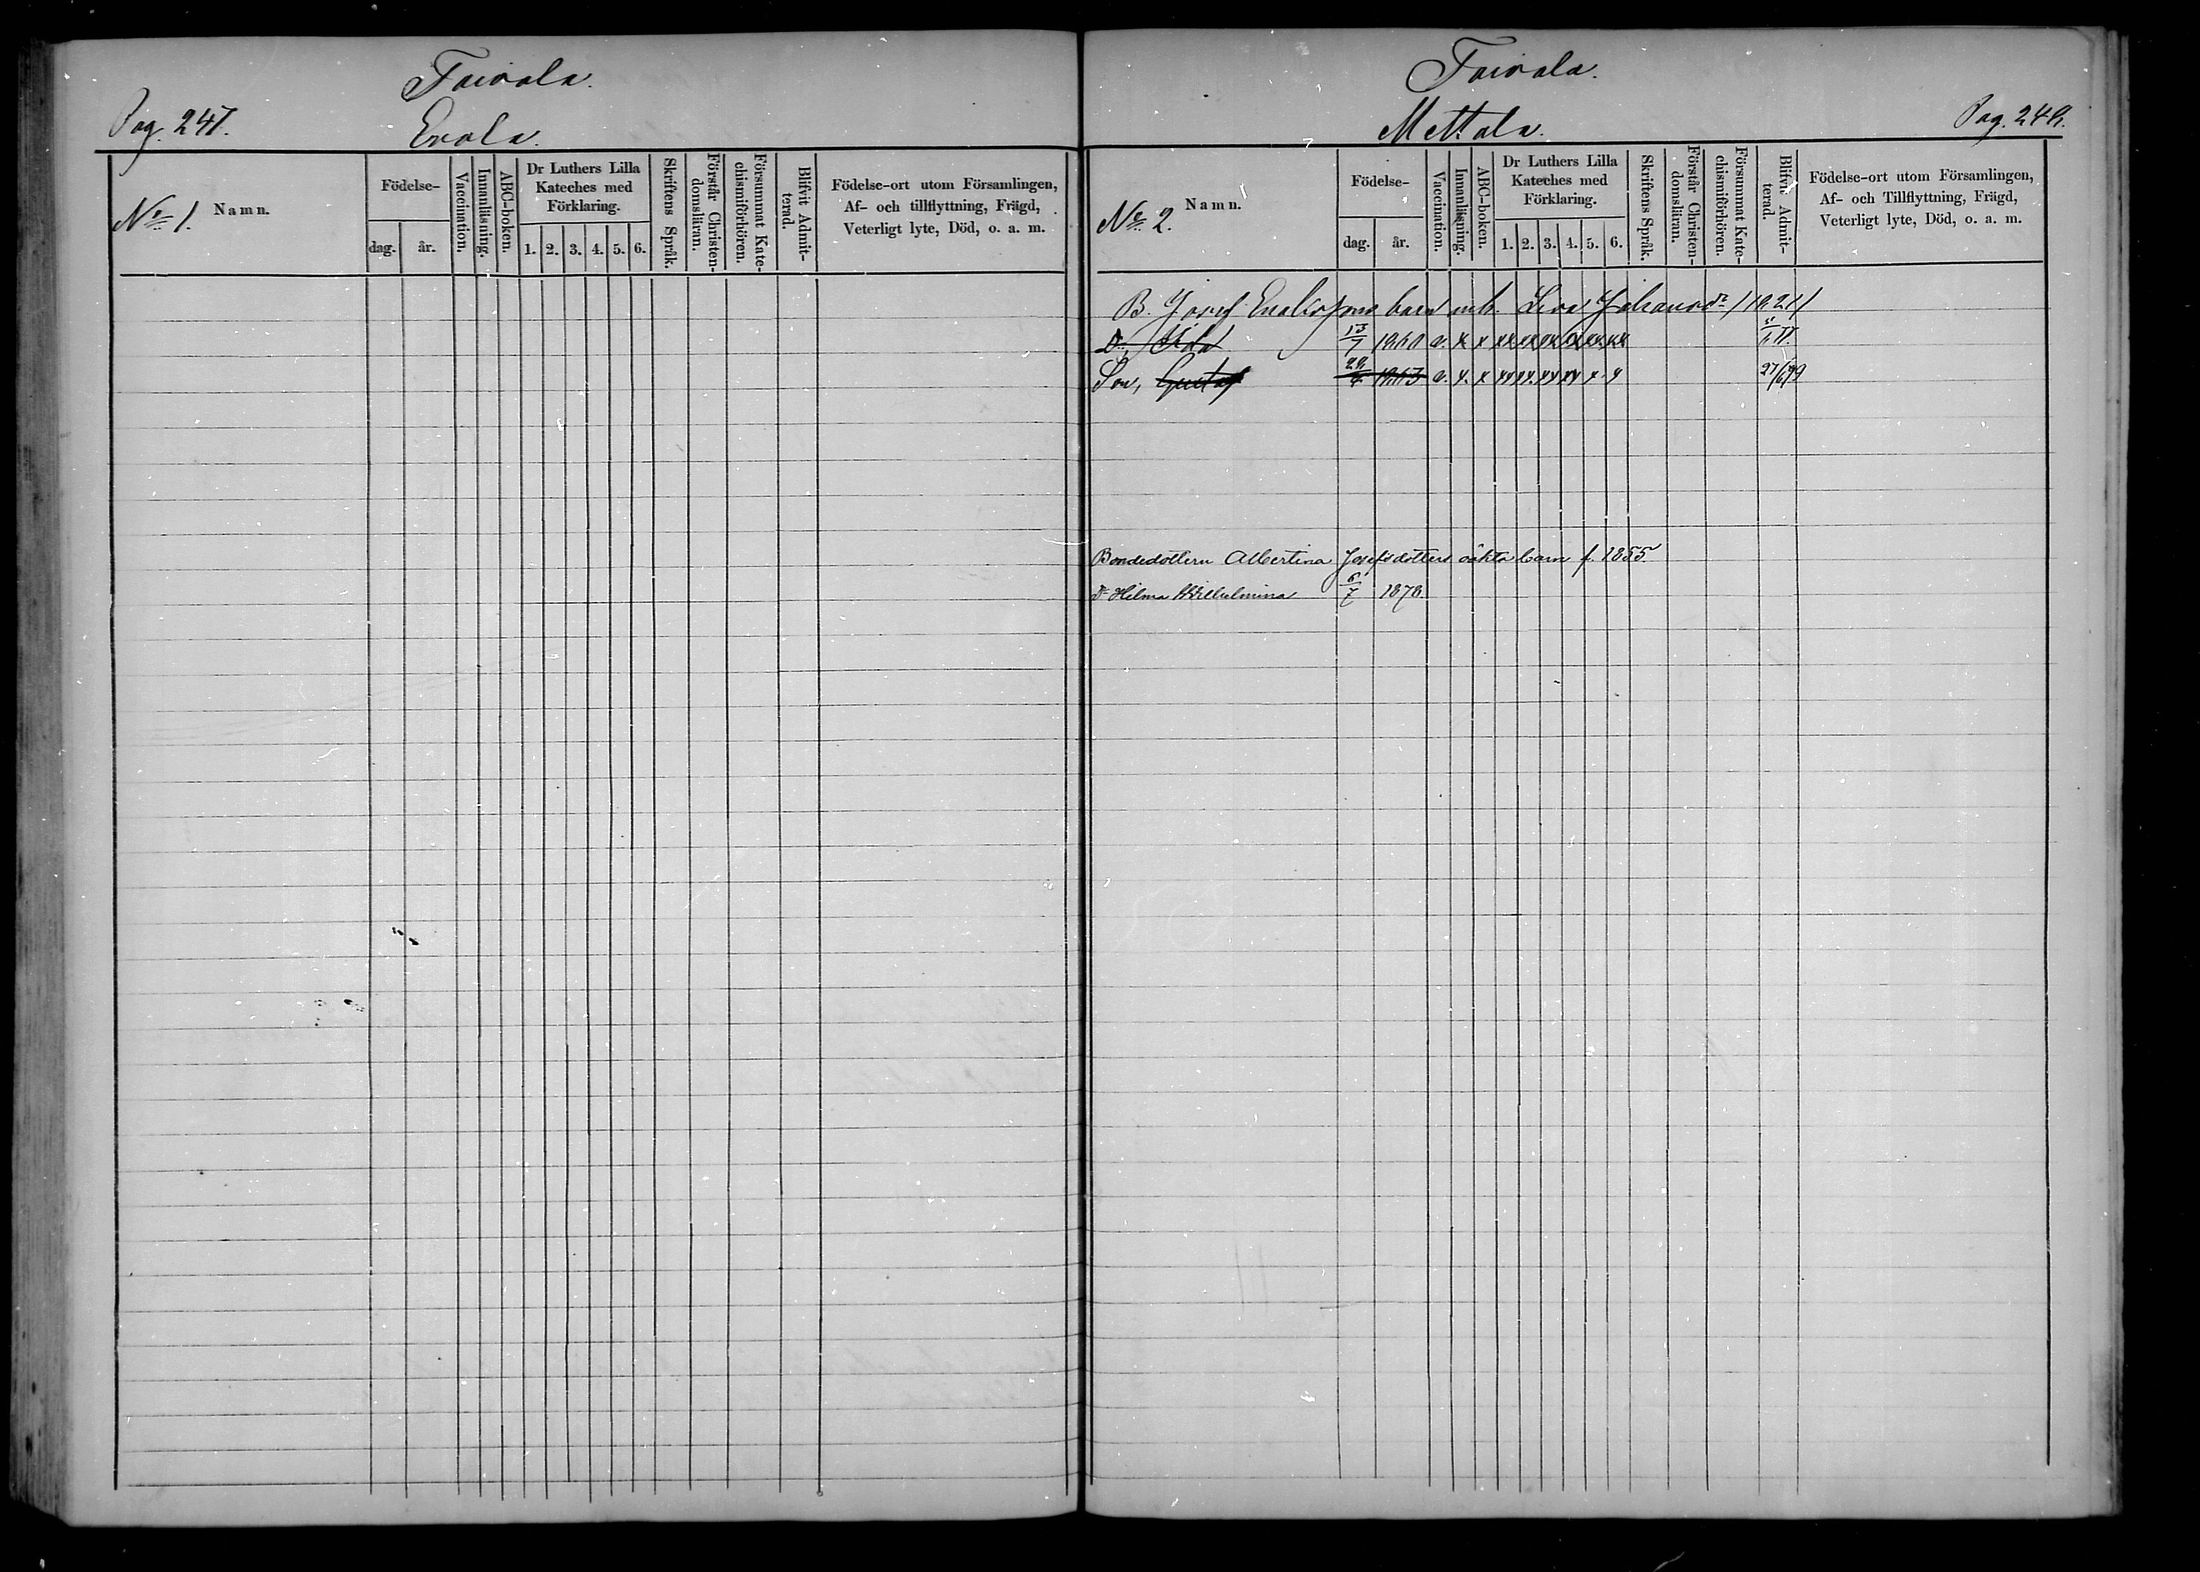 Toivola.
Pag. 247.
Erola.
No 1. Namn.
Födelse-
dag. år.
Vaccination.
Innanläsning.
ABC-boken.
Dr Luthers Lilla
Kateches med
Förklaring.
1. 2. 3. 4. 5. 6.
Skriftens Språk.
Förstår Christen-
domsläran.
Försummat Kate-
chismiförhören.
Blifvit Admit-
terad.
Födelse-ort utom Församlingen,
Af- och tillflyttning, Frägd,
Veterligt lyte, Död, o. a. m.
Toivola.
Mettala.
Pag. 248.
No 2. Namn.
Födelse-
dag. år.
Vaccination.
Innanläsning.
ABC-boken.
Dr Luthers Lilla
Kateches med
Förklaring.
1. 2. 3. 4. 5. 6.
Skriftens Språk.
Förstår Christen-
domsläran.
Försummat Kate-
chismiförhören.
Blifvit Admit-
terad.
Födelse-ort utom Församlingen,
Af- och Tillflyttning, Frägd,
Veterligt lyte, Död, o. a. m.
B. Josef barn
Dr, Ida 13/7 1860 v. x x xx xx xx xx xx xx
Son, Gustaf 1863 v. x. x xx xx xx xx x x 27/6 79
Bondedottern Albertina Josefsdotters oäkta barn f. 1855.
Dr Hilma Wilhelmina 6/7 1878.